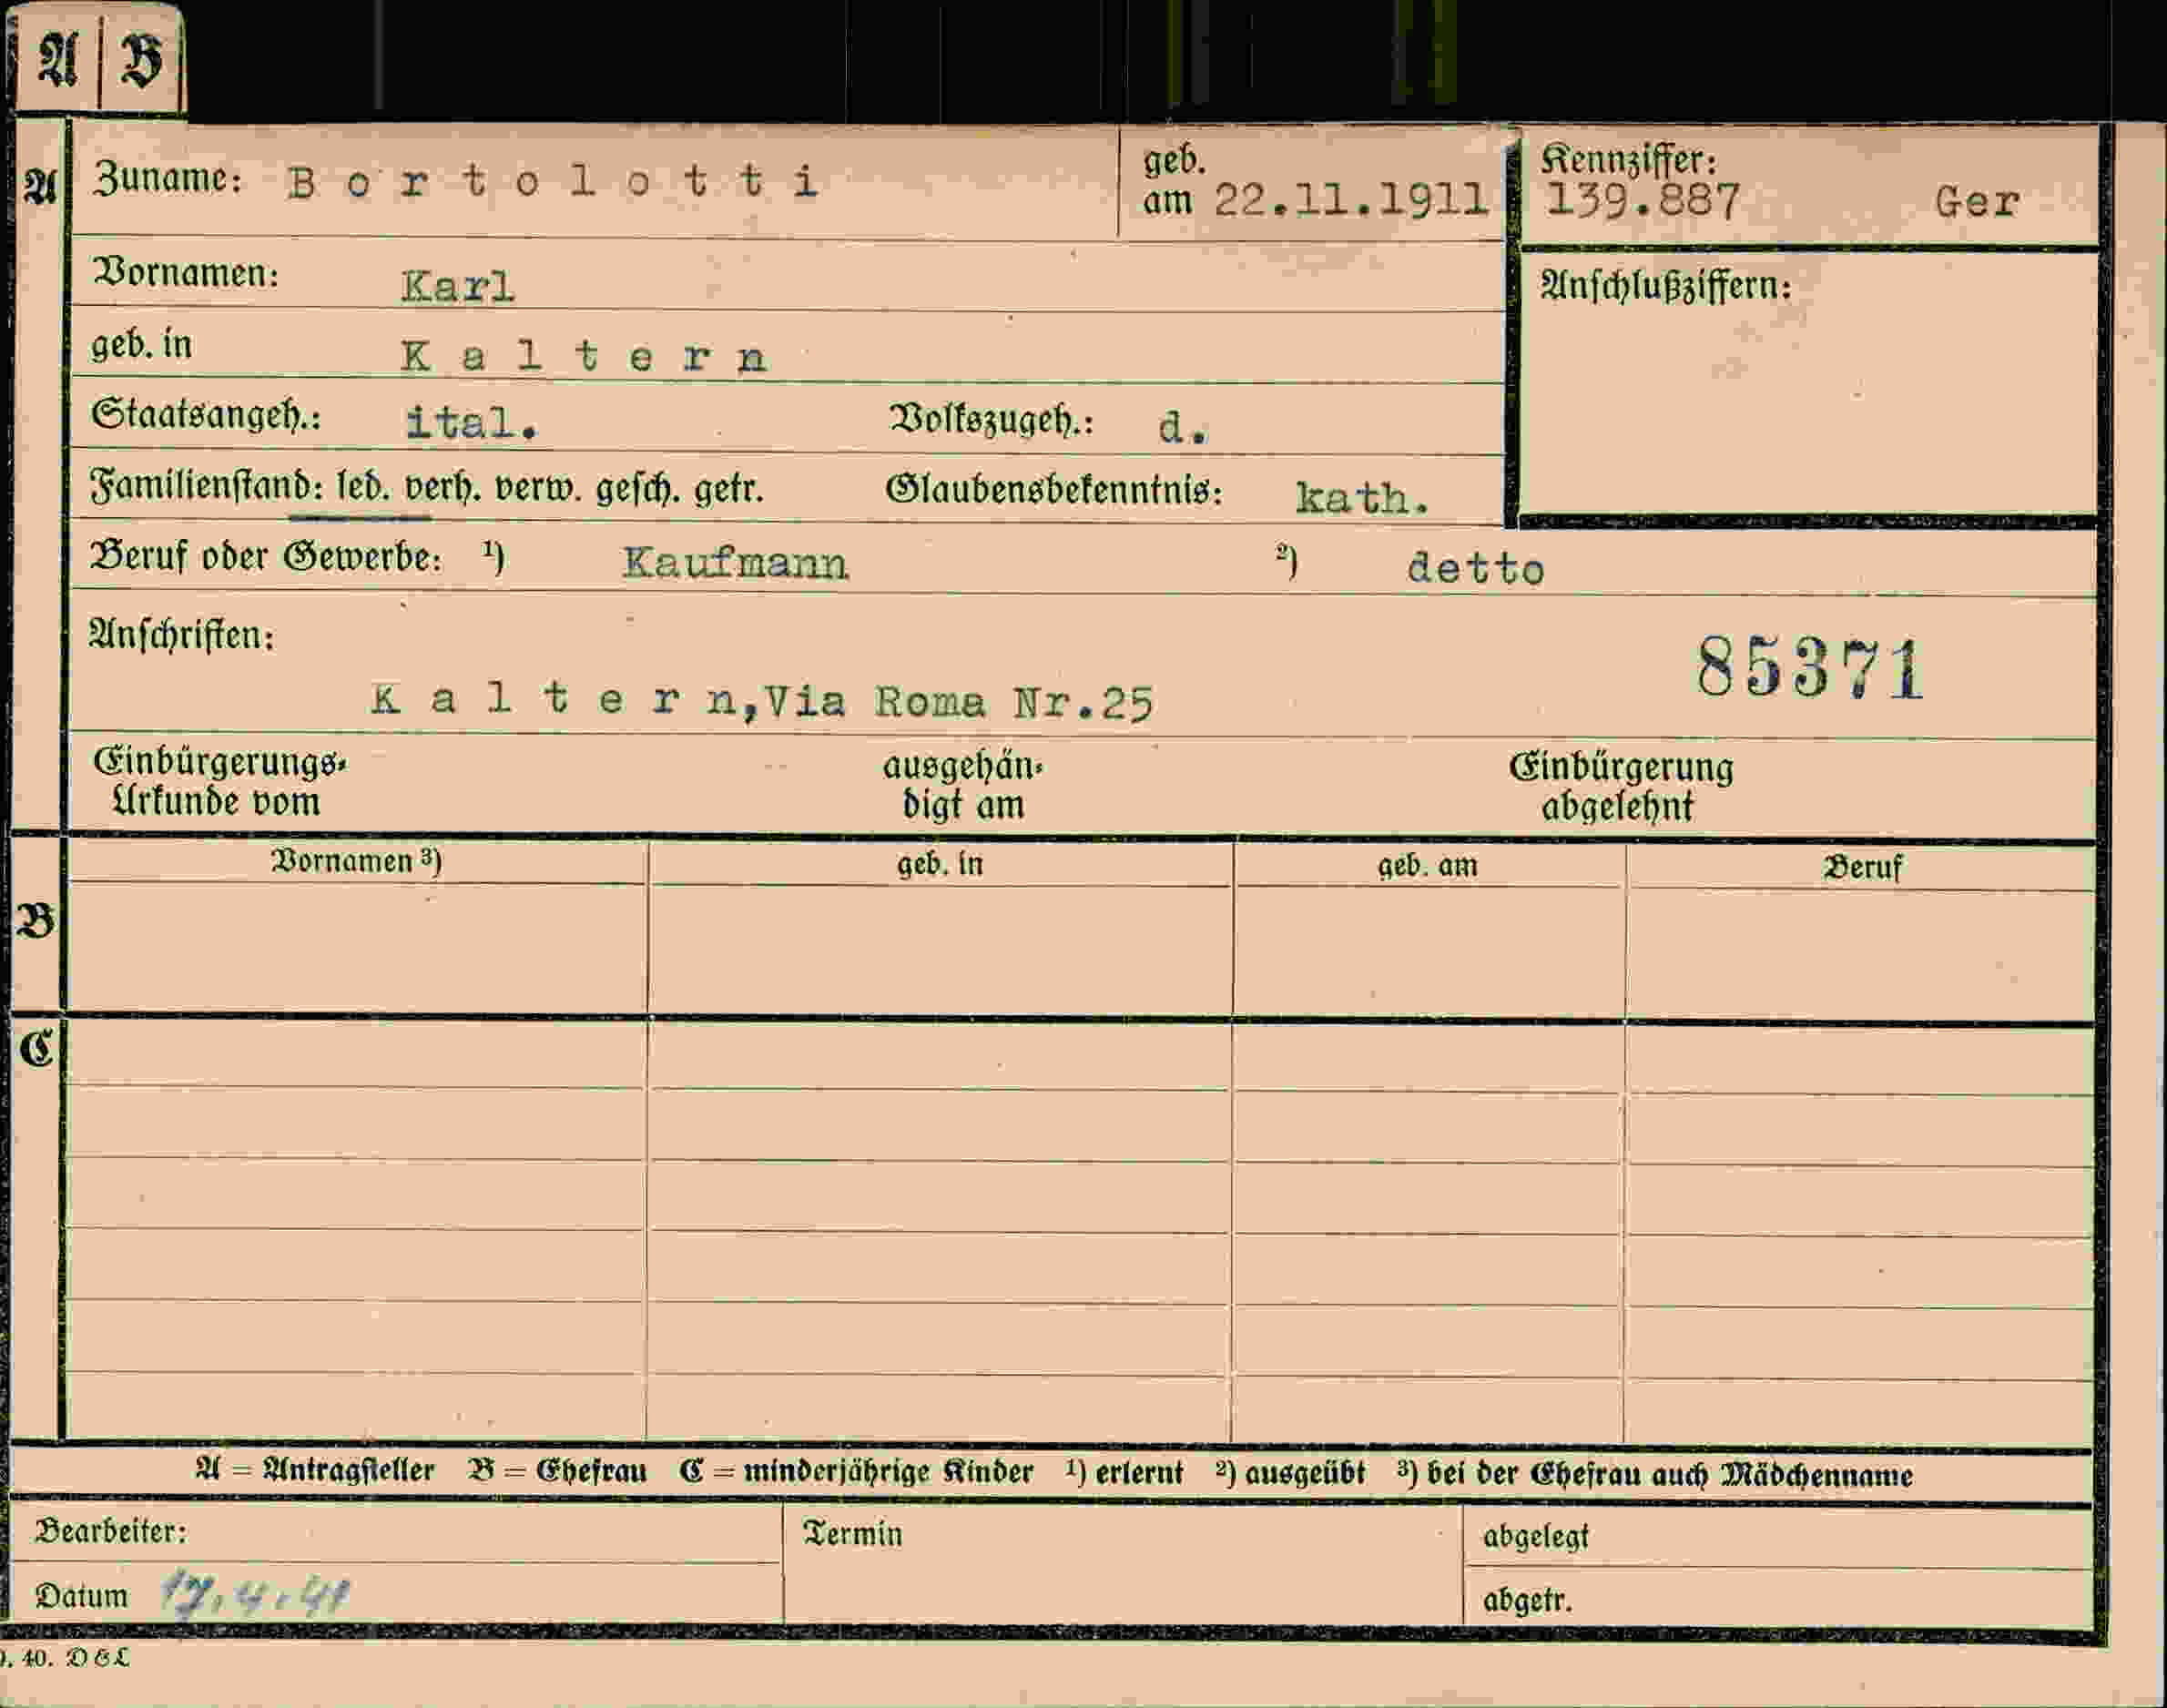 A | B
A Zuname: Bortolotti geb. am 22.11.1911 Kennziffer: 139.887 Ger
Vornamen: Karl Anschlußziffern:
geb. in Kaltern
Staatsangeh.: ital. Volkszugeh.: d.
Familienstand: led. verh. verw. gesch. getr. Glaubensbekenntnis: kath.
Beruf oder Gewerbe: ¹) Kaufmann ²) detto
Anschriften: 85371
Kaltern,Via Roma Nr.25
Einbürgerungs- ausgehän- Einbürgerung
Urkunde vom digt am abgelehnt
Vornamen ³) geb. in geb. am Beruf
B
C
A = Antragsteller B = Ehefrau C = minderjährige Kinder ¹) erlernt ²) ausgeübt ³) bei der Ehefrau auch Mädchenname
Bearbeiter: Termin abgelegt
Datum 17.4.41 abgetr.
40. D & L